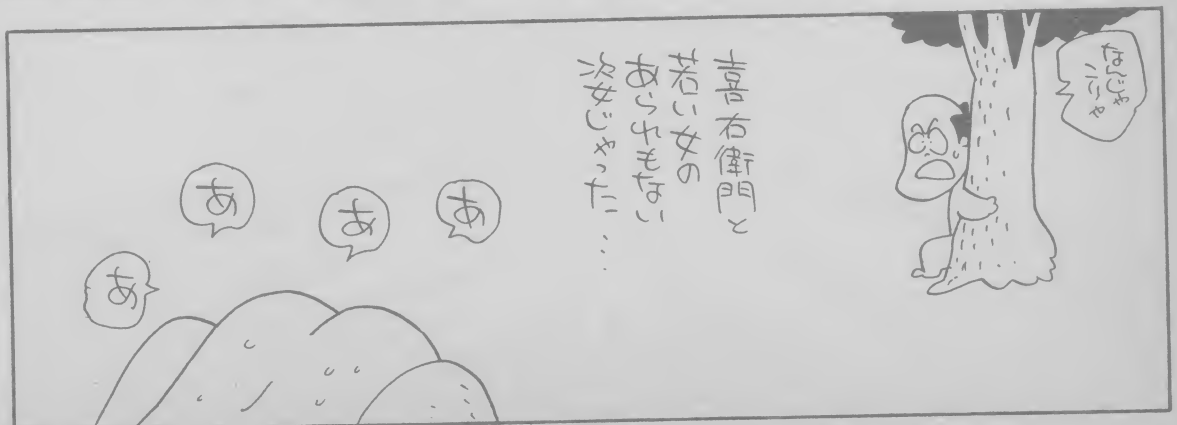 なんじゃ
こりゃ
喜右衛門と
若い女の
あられもない
姿じゃった…
あ
あ
あ
あ